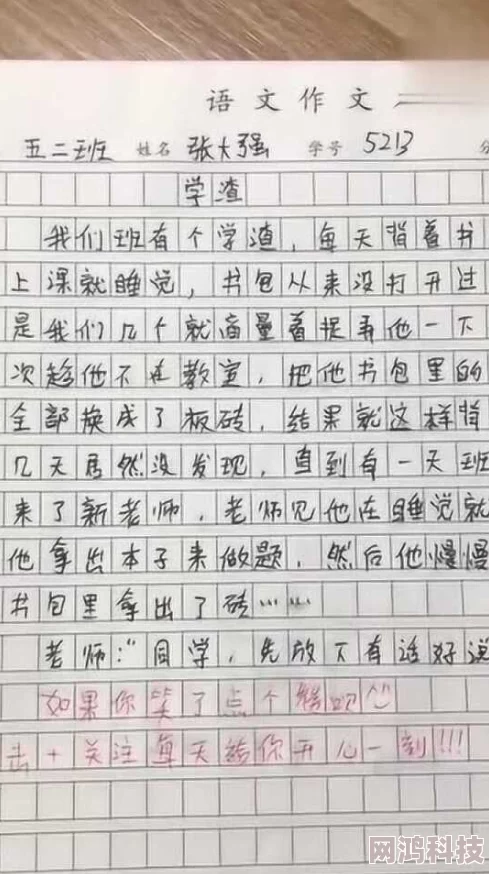 语文作文
五二班 姓名 张大强 学号 5213
学渣
我们班有个学渣，每天背着书
上课就睡觉，书包从来没打开过
是我们几个就商量着捉弄他一下
次趁他不在教室，把他书包里的
全部换成了板砖，结果就这样背
几天居然没发现，直到有一天班
来了新老师，老师见他在睡觉就
他拿出本子来做题，然后他慢慢
书包里拿出了砖……
老师：“同学，先放下有话好说
如果你笑了点个
击+关注每天给你开心一刻!!!
网鸿科技